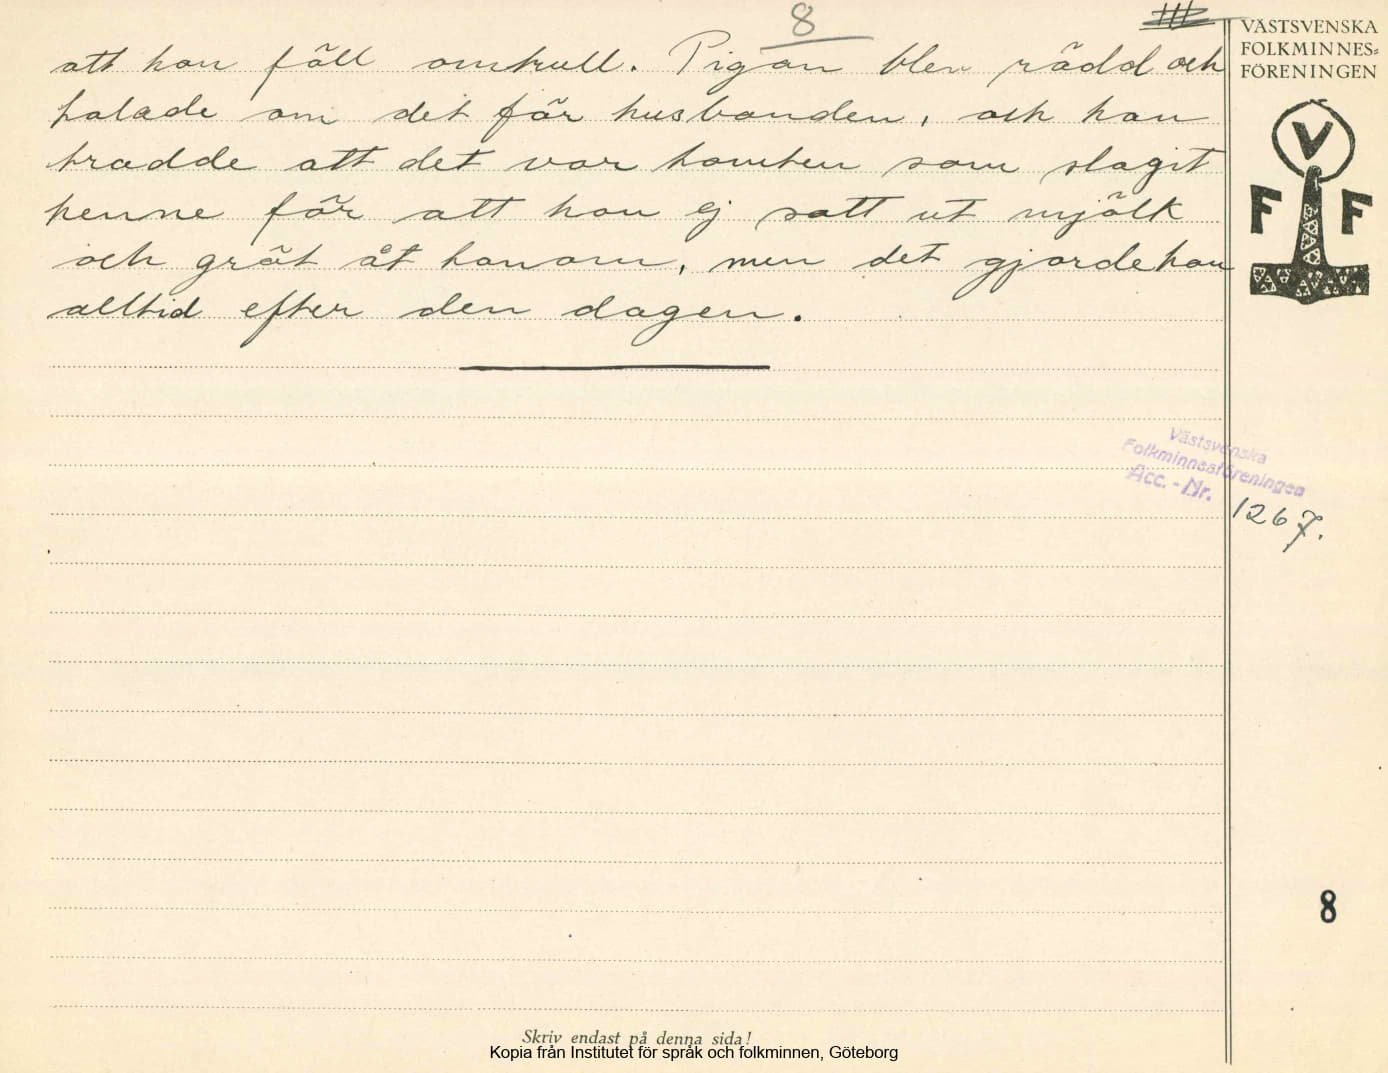 8
III
VÄSTSVENSKA
FOLKMINNES=
FÖRENINGEN
V
F F
att hon föll omkull. Pigan blev rädd och
talade om det för husbonden, och han
trodde att det var tomten som slagit
henne för att hon ej satt ut mjölk
och gröt åt honom, men det gjorde hon
alltid efter den dagen.
Västsvenska
Folkminnesföreningen
Acc. - Nr. 1267.
8
Skriv endast på denna sida!
Kopia från Institutet för språk och folkminnen, Göteborg